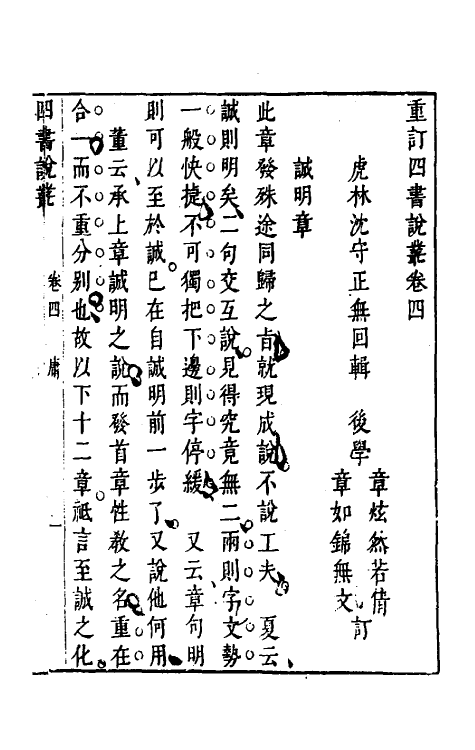 重訂四書說叢卷四
虎林沈守正無回輯　後學
章炫然若倩
章如錦無文
訂
誠明章
此章發殊途同歸之旨就現成說不說工夫　夏云
誠則明矣二句交互說見得究竟無二兩則字文勢
一般快捷不可獨把下邊則字停緩　又云章句明
則可以至於誠已在自誠明前一步了又說他何用
董云承上章誠明之說而發首章性教之名重在
合一而不重分别也故以下十二章祗言至誠之化
四書說叢　卷四　庸　一